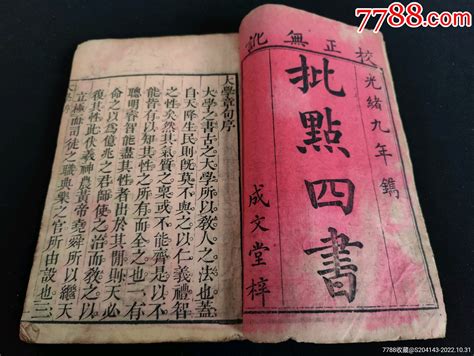 7788.com
校正無訛
光緒九年鐫
批點四書
成文堂梓
大學章句序
大學之書古之大學所以教人之法也蓋
自天降生民則既莫不與之以仁義禮智
之性矣然其氣質之稟或不能齊是以不
能皆有以知其性之所有而全之也一有
聰明睿智能盡其性者出於其閒則天必
命之以為億兆之君師使之治而教之以
復其性此伏羲神農黃帝堯舜所以繼天
立極而司徒之職典樂之官所由設也三
7788收藏@S204143-2022.10.31